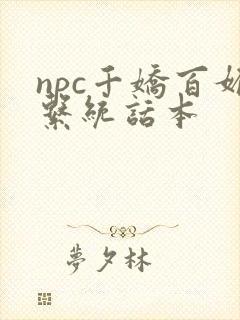 npc千嬌百媚
繫統話本
夢夕林